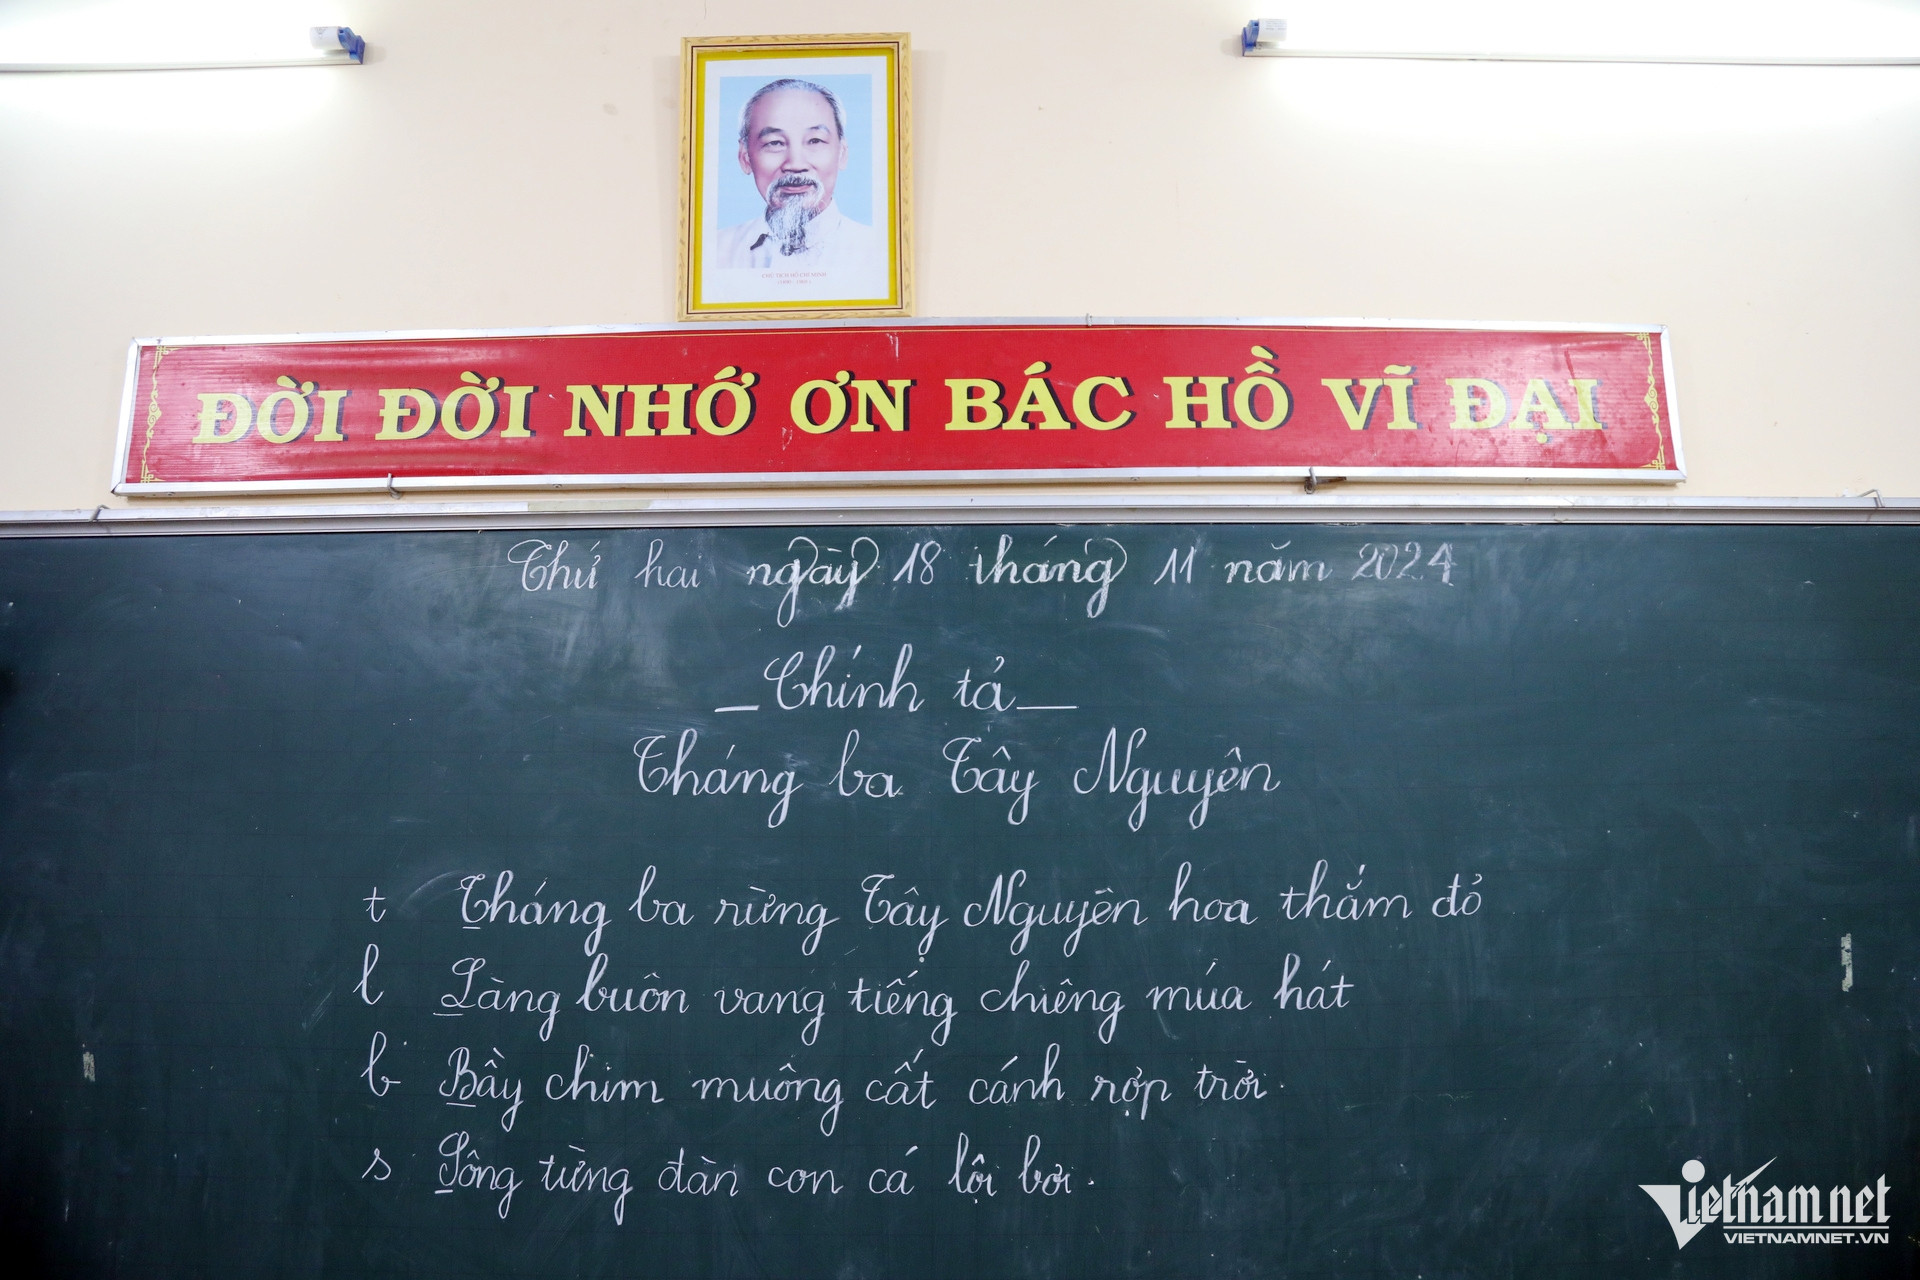 CHỦ TỊCH HỒ CHÍ MINH
(1890 - 1969)
ĐỜI ĐỜI NHỚ ƠN BÁC HỒ VĨ ĐẠI
Thứ hai ngày 18 tháng 11 năm 2024
_Chính tả_
Tháng ba Tây Nguyên
t Tháng ba rừng Tây Nguyên hoa thắm đỏ
l Làng buôn vang tiếng chiêng múa hát
b Bầy chim muông cất cánh rợp trời.
s Sông từng đàn con cá lội bơi.
Vietnamnet
VIETNAMNET.VN